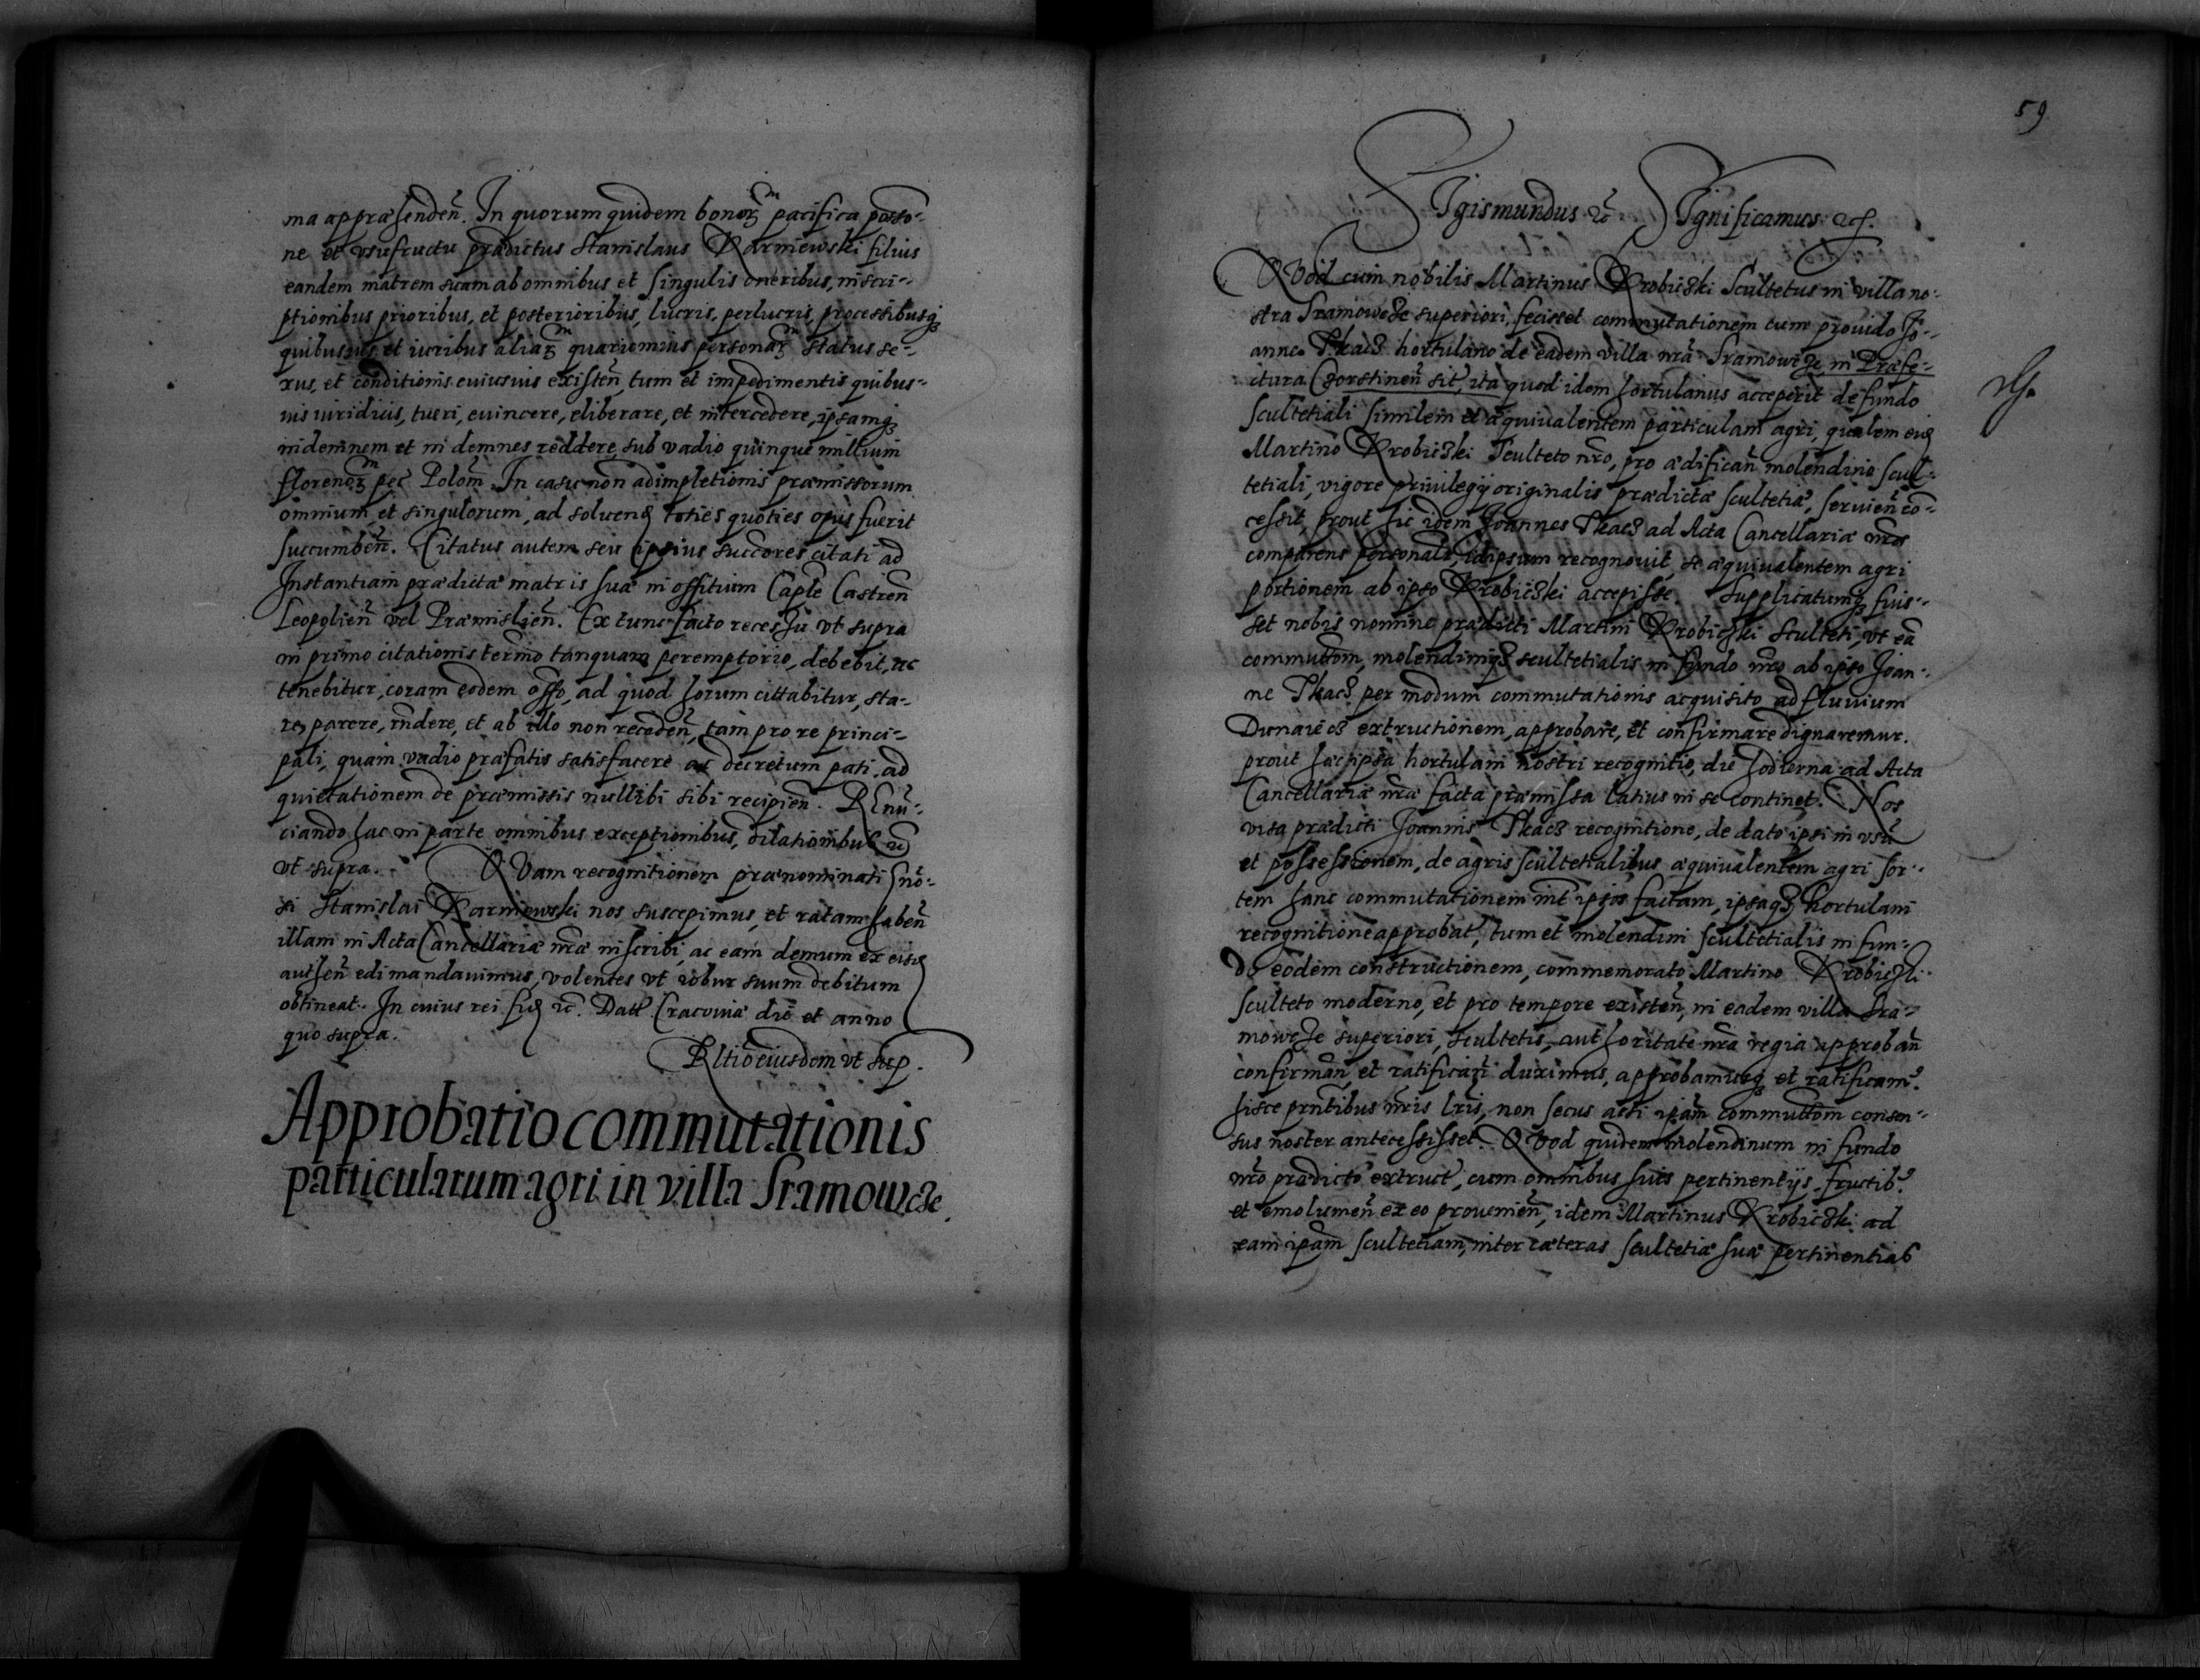 ma appræhenden̄. In quorum quidem bonorꝫ pacifica posso-
ne et vsufructu prædictus Stanislaus Karniewski filius
eandem matrem suam ab omnibus et singulis oneribus, inscri-
ptionibus prioribus, et posterioribus, lucris, perlucris, processibusqꝫ
quibusuis et iuribus aliarꝫ quariomuis personarꝫ status se-
xus, et conditionis cuiusuis existen̄, tum et impedimentis quibus-
uis iuridicis, tueri, euincere, eliberare, et intercedere, ipsamqꝫ
indemnem et indemnes reddere, sub vadio quinque millium
florenorꝫ pec̄ Polon̄. In casu non adimpletionis præmissorum
omnium, et singulorum, ad soluend toties quoties opus fuerit
succumben̄. Citatus autem seu ipsius succores citati ad
Instantiam prædictæ matris suæ in offitium Caplē Castren̄
Leopolien̄ vel Præmislien̄. Ex tunc facto recessu vt supra
in primo citationis termō tanquam peremptorio, debebit, ac
tenebitur, coram eodem offō, ad quod horum cittabitur, sta-
re, parere, rn̄dere, et ab illo non receden̄, tam pro re princi-
pali, quam vadio præfatis satisfacere ac decretum pati, ad
quietationem de præmissis nullibi sibi recipien̄. REnū-
ciando hac in parte omnibus exceptionibus, dilationibus etc
vt supra. QVam recognitionem prænominati Gn̄o-
si Stanislai Karniewski nos suscepimus, et ratam haben̄
illam in Acta Cancellariæ nrāe inscribi, ac eam demum ex eisd
authen̄ edi mandauimus, volentes vt robur suum debitum
obtineat. In cuius rei fid etc. Datt̄ Cracouiæ die et anno
quo supra.
Rltio eiusdem vt sup.
Approbatio commutationis
particularum agri in villa Sramowcze.
59
SIgismundus etc SIgnificamus etc.
QVod cum nobilis Martinus Krobiczki Scultetus in villa no-
stra Sramowcze superiori, fecisset commutationem cum prouido Jo-
anne Tkacz hortulano de eadem villa nrā Sramowcze, in Præfe-
ctura Czorstinen̄ sit̄, ita quod idem hortulanus acceperit de fundo
scultetiali similem et æquiualentem particulam agri, qualem eid
Martino Krobiczki Sculteto nrō, pro ædifican̄ molendino scul-
tetiali, vigore priuilegij originalis prædictæ scultetiæ, seruien̄ co-
cessit, prout hic idem Joannes Tkacz ad Acta Cancellariæ nrāe
comparens personalr̄, idipsum recognouit, se æquiualentem agri
portionem ab ipso Krobiczki accepisse. Supplicatumqꝫ fuis-
set nobis nomine prædicti Martini Krobiczki Sculteti, vt eā
commuttōm, molendiniqꝫ scultetialis in fundo nrō ab ipso Joan-
ne Tkacz per modum commutationis acquisito ad fluuium
Dunaiecz extructionem, approbare, et confirmare dignaremur.
prout hæc ipsa hortulani nostri recognitio, die hodierna ad Acta
Cancellariæ nrāe facta præmissa latius in se continet. Nos
visa prædicti Joannis Tkacz recognitione, de dato ipsi in vsū
et possessionem, de agris scultetialibus æquiualentem agri sor-
tem hanc commutationem int̄ ipsos factam, ipsaqꝫ hortulani
recognitione approbat̄, tum et molendini scultetialis in fun-
do eodem constructionem, commemorato Martino Krobiczki
sculteto moderno, et pro tempore existen̄, in eadem villa Sra-
mowcze superiori, scultetis, authoritate nrā regia approban̄
confirman̄, et ratifican̄ duximus, approbamusqꝫ et ratificam9.
hisce prn̄tibus nrīs lrīs, non secus acsi ipām commuttōm consen-
sus noster antecessisset. QVod quidem molendinum in fundo
nrō prædicto extruct̄, cum omnibus suis pertinentijs, fructib9.
et emolumen̄ ex eo prouenien̄, idem Martinus Krobiczki ad
eam ipām scultetiam, inter cæteras scultetiæ suæ pertinentias